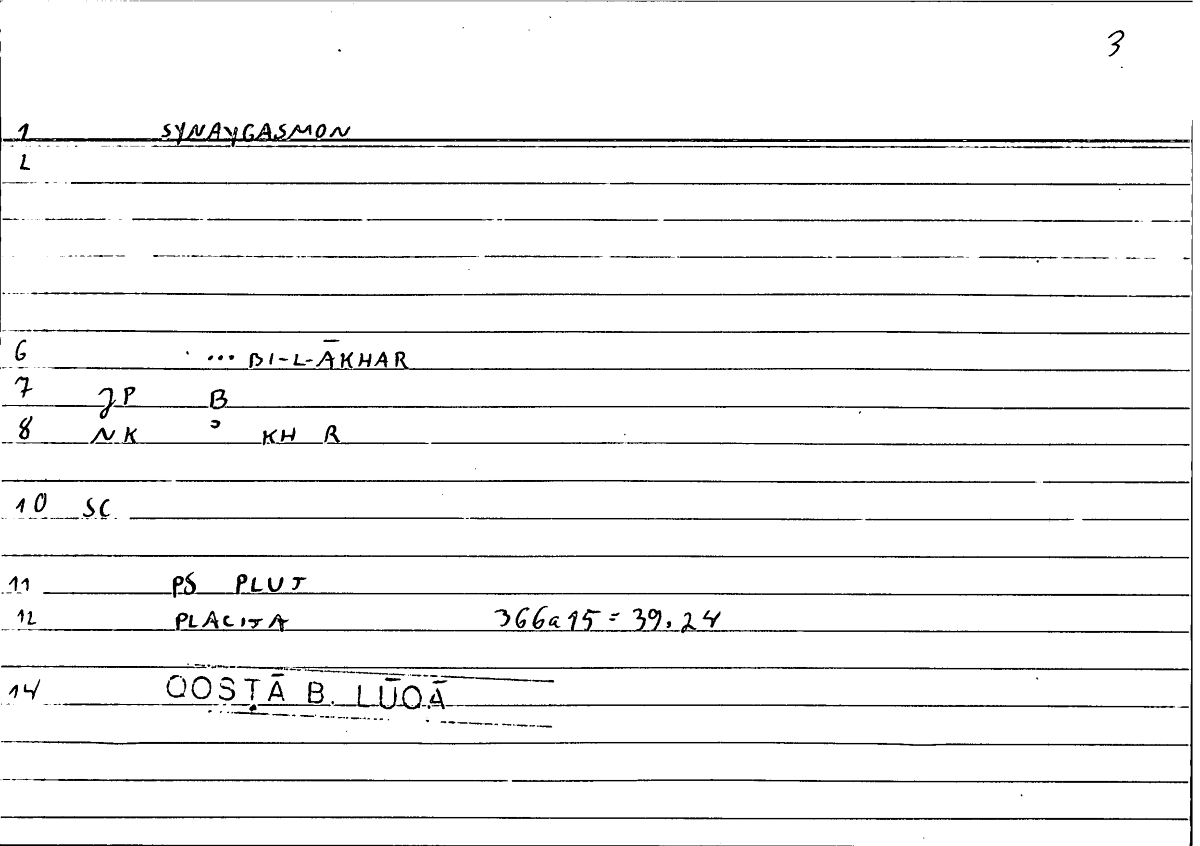 3
1 SYNAYGASMON
2
6 ... BI-L-ĀKHAR
7 JP B
8 NK ʾ KH R
10 SC
11 PS PLUT
12 PLACITA 366a15 = 39.24
14 QOSṬĀ B. LŪQĀ